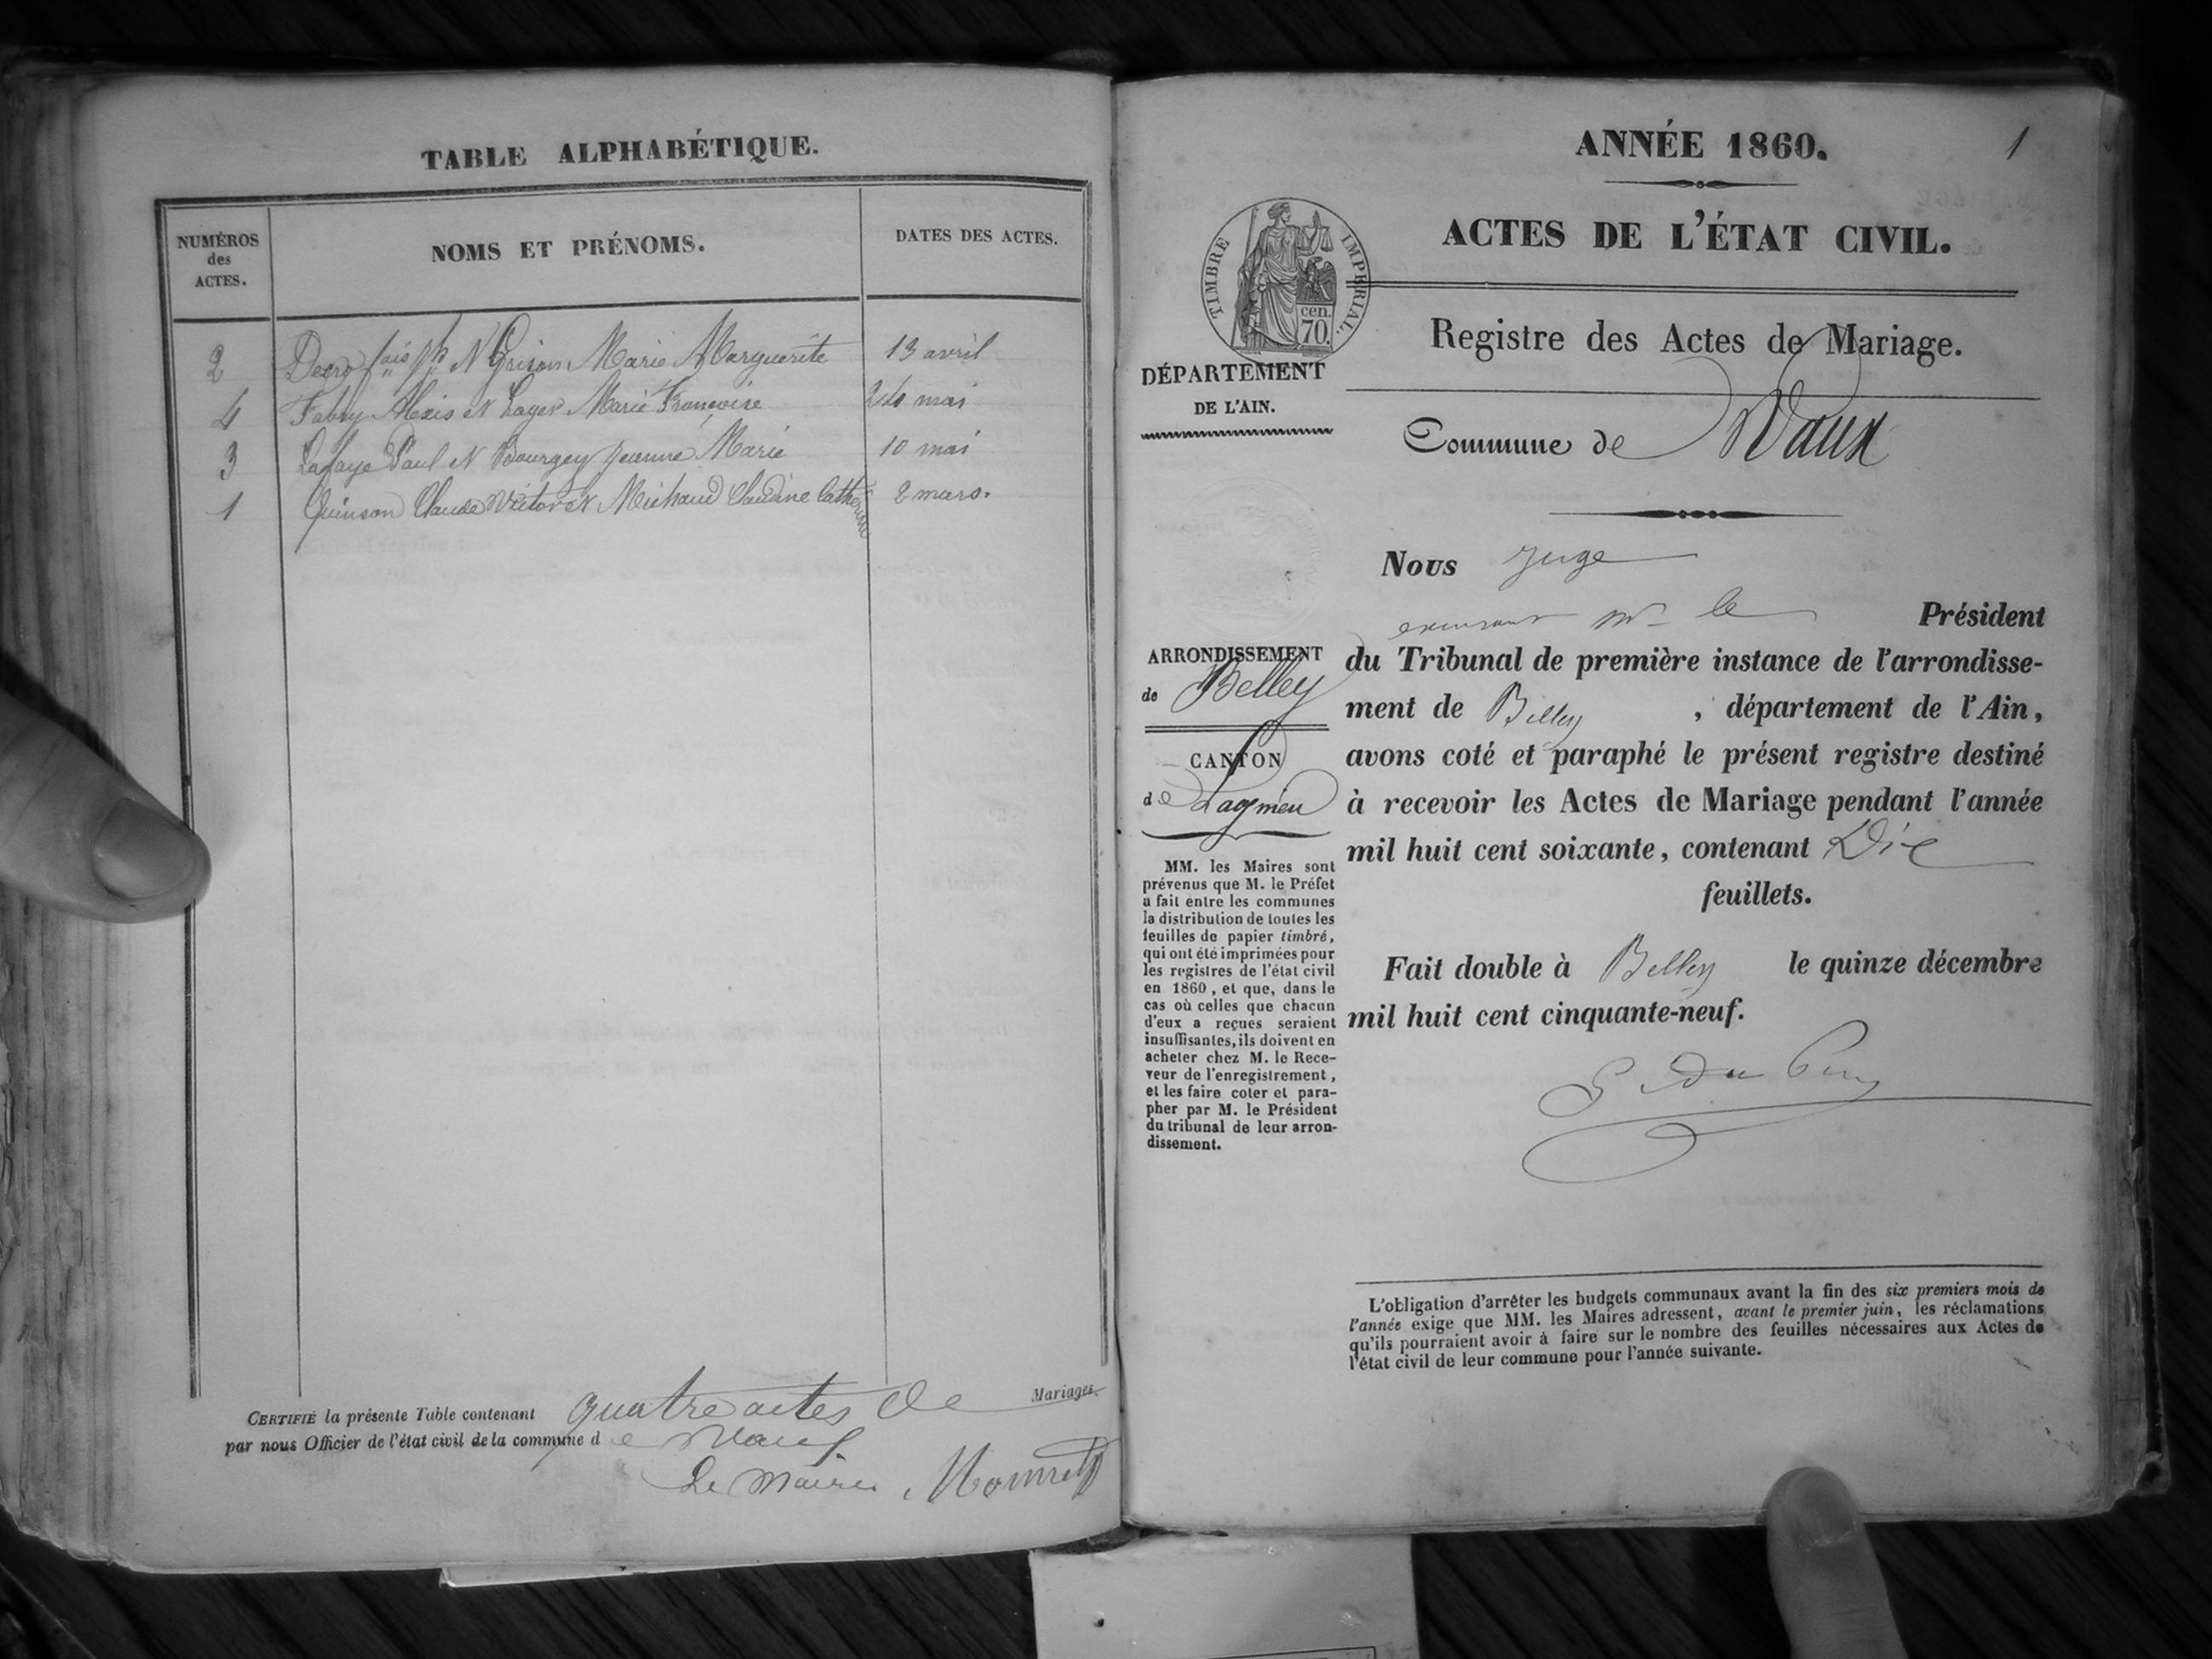 TABLE ALPHABÉTIQUE.
NUMÉROS
des
ACTES.
NOMS ET PRÉNOMS.
DATES DES ACTES.
2 Marie Marguerite 13 avril
4 Fabry Alexis et Lager Marie Françoise 24 mai
3 Lafaye Paul et Bourgey Jeanne Marie 10 mai
1 Quinson Claude Victor et Michaud Claudine Catherine 2 mars.
CERTIFIÉ la présente Table contenant quatre actes de Mariages.
par nous Officier de l'état civil de la commune de Vaux
Le Maire,
ANNÉE 1860.
1
ACTES DE L'ÉTAT CIVIL.
TIMBRE IMPÉRIAL.
cen.
70.
Registre des Actes de Mariage.
DÉPARTEMENT
DE L'AIN.
Commune de Vaux
Nous juge
Mr le Président
du Tribunal de première instance de l'arrondisse-
ment de Belley, département de l'Ain,
avons coté et paraphé le présent registre destiné
à recevoir les Actes de Mariage pendant l'année
mil huit cent soixante, contenant Dix
feuillets.
Fait double à Belley le quinze décembre
mil huit cent cinquante-neuf.
ARRONDISSEMENT
de Belley
CANTON
de Lagnieu
MM. les Maires sont
prévenus que M. le Préfet
a fait entre les communes
la distribution de toutes les
feuilles de papier timbré,
qui ont été imprimées pour
les registres de l'état civil
en 1860, et que, dans le
cas où celles que chacun
d'eux a reçues seraient
insuffisantes, ils doivent en
acheter chez M. le Rece-
veur de l'enregistrement,
et les faire coter et para-
pher par M. le Président
du tribunal de leur arron-
dissement.
L'obligation d'arrêter les budgets communaux avant la fin des six premiers mois de
l'année exige que MM. les Maires adressent, avant le premier juin, les réclamations
qu'ils pourraient avoir à faire sur le nombre des feuilles nécessaires aux Actes de
l'état civil de leur commune pour l'année suivante.